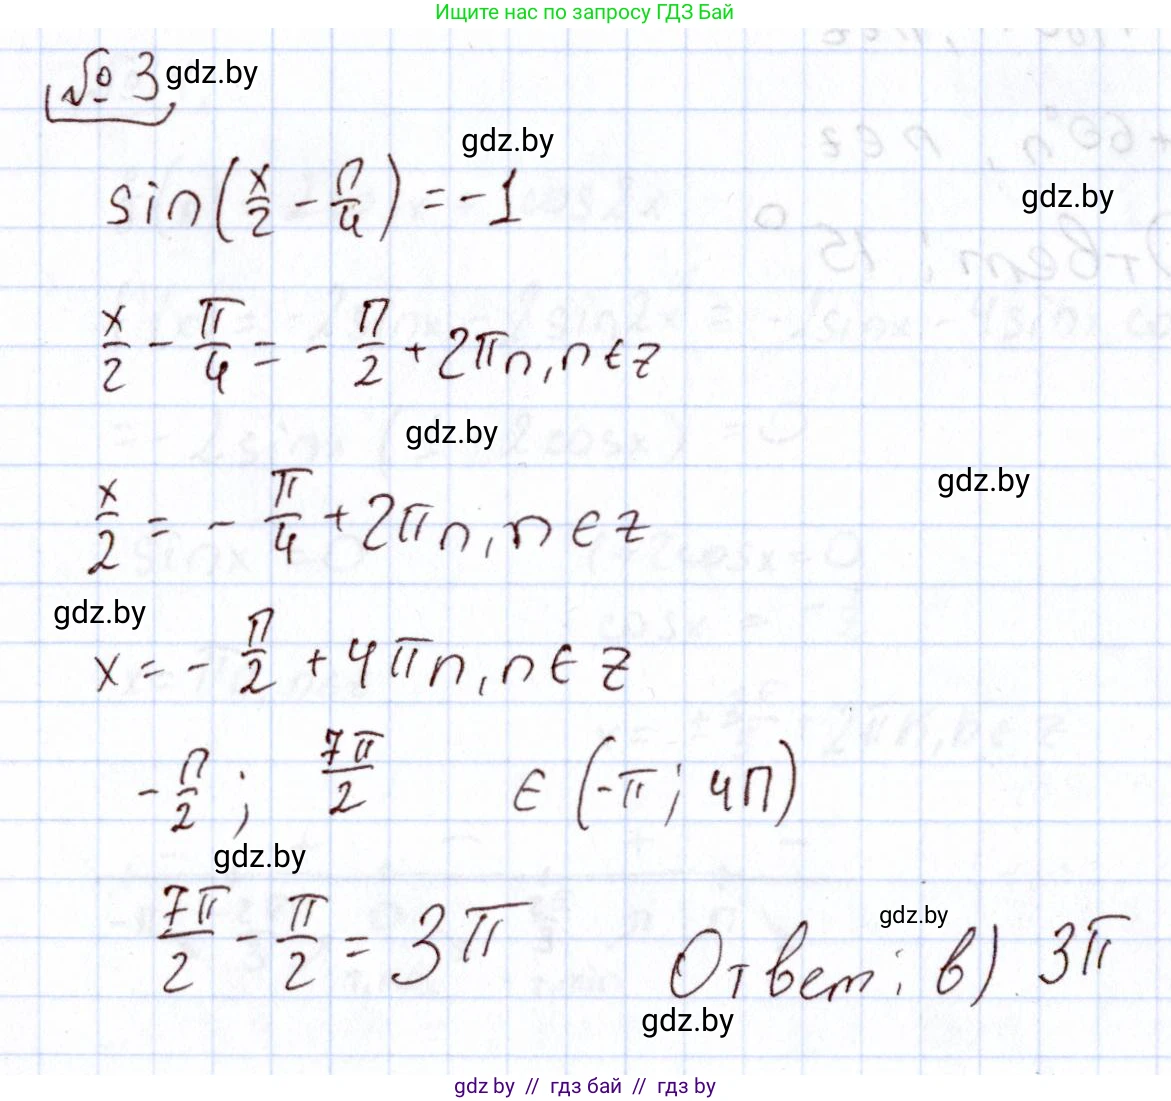 Ищите нас по запросу ГДЗ Бай
№ 3 gdz.by
gdz.by
gdz.by
sin(x/2 - π/4) = -1
x/2 - π/4 = - π/2 + 2πn, n ∈ z
gdz.by
gdz.by
x/2 = - π/4 + 2πn, n ∈ z
gdz.by
x = - π/2 + 4πn, n ∈ z
- π/2 ; 7π/2 ∈ (-π ; 4π)
gdz.by
7π/2 - π/2 = 3π
gdz.by
Ответ: в) 3π
gdz.by
gdz by // гдз бай // гдз by